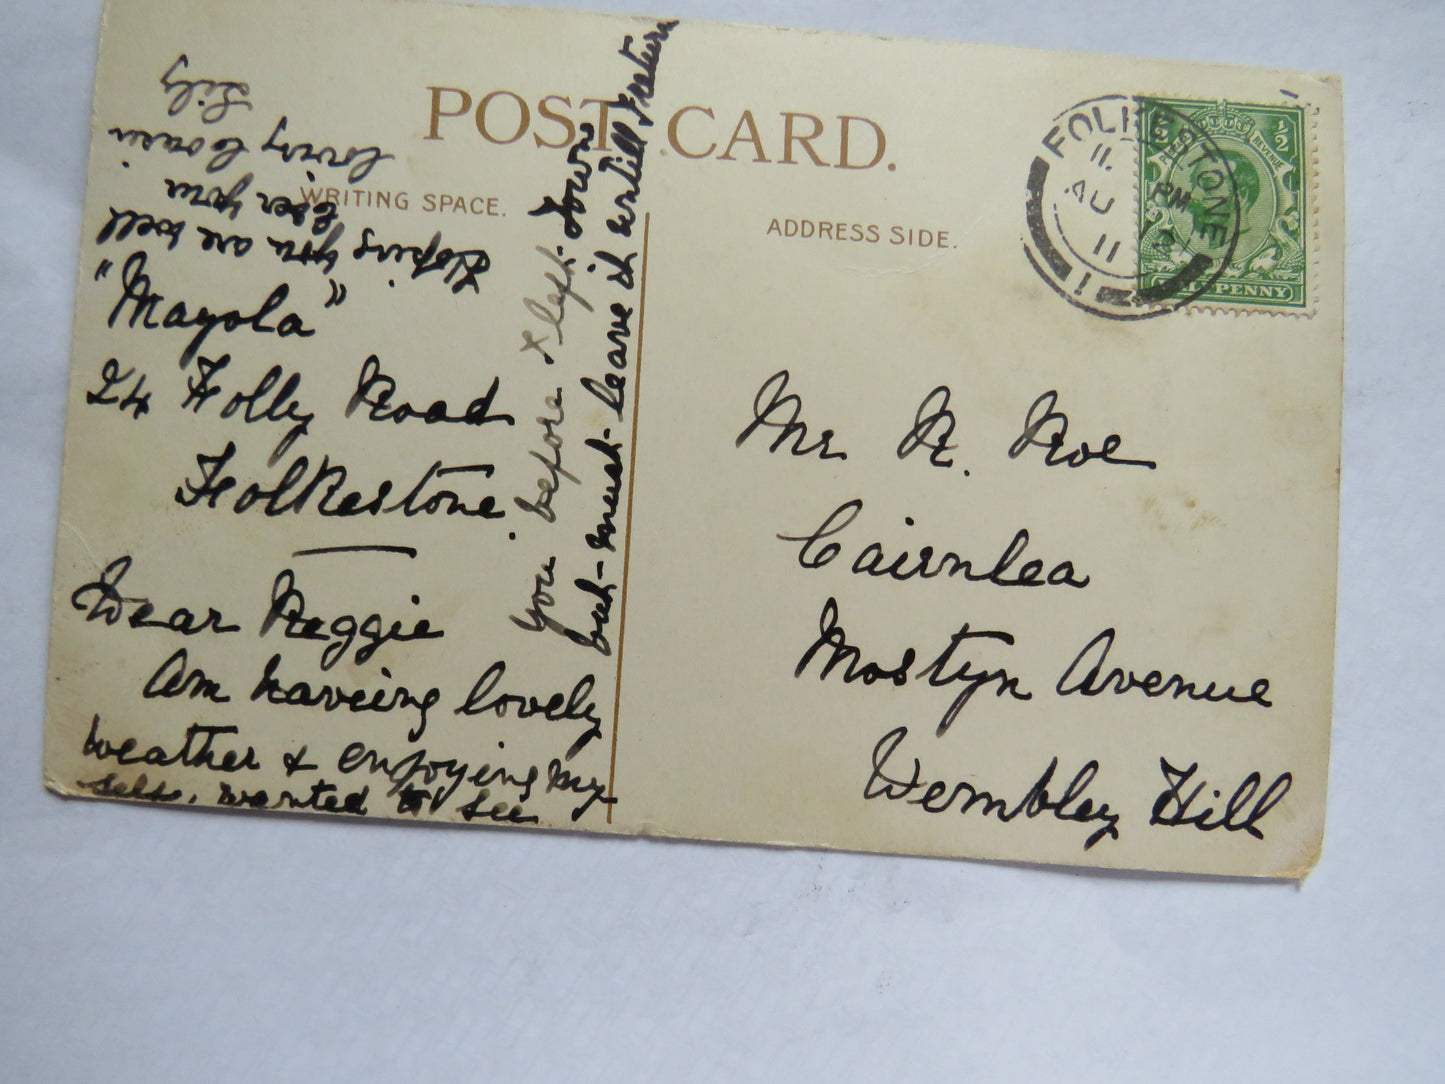 POST CARD.
WRITING SPACE.
ADDRESS SIDE.
FOLKESTONE
PM
11
AU 12
11
POSTAGE
REVENUE
½
HALFPENNY
"Mayola"
24 Folly Road
Folkestone.
Dear Reggie
Am haveing lovely
weather & enjoying my-
self, wanted to see
you before I left Town
but must leave it untill I return
Hopeing you are well
Ever your
loving Cousin
Lily
Mr R. Roe
Cairnlea
Mostyn Avenue
Wembley Hill